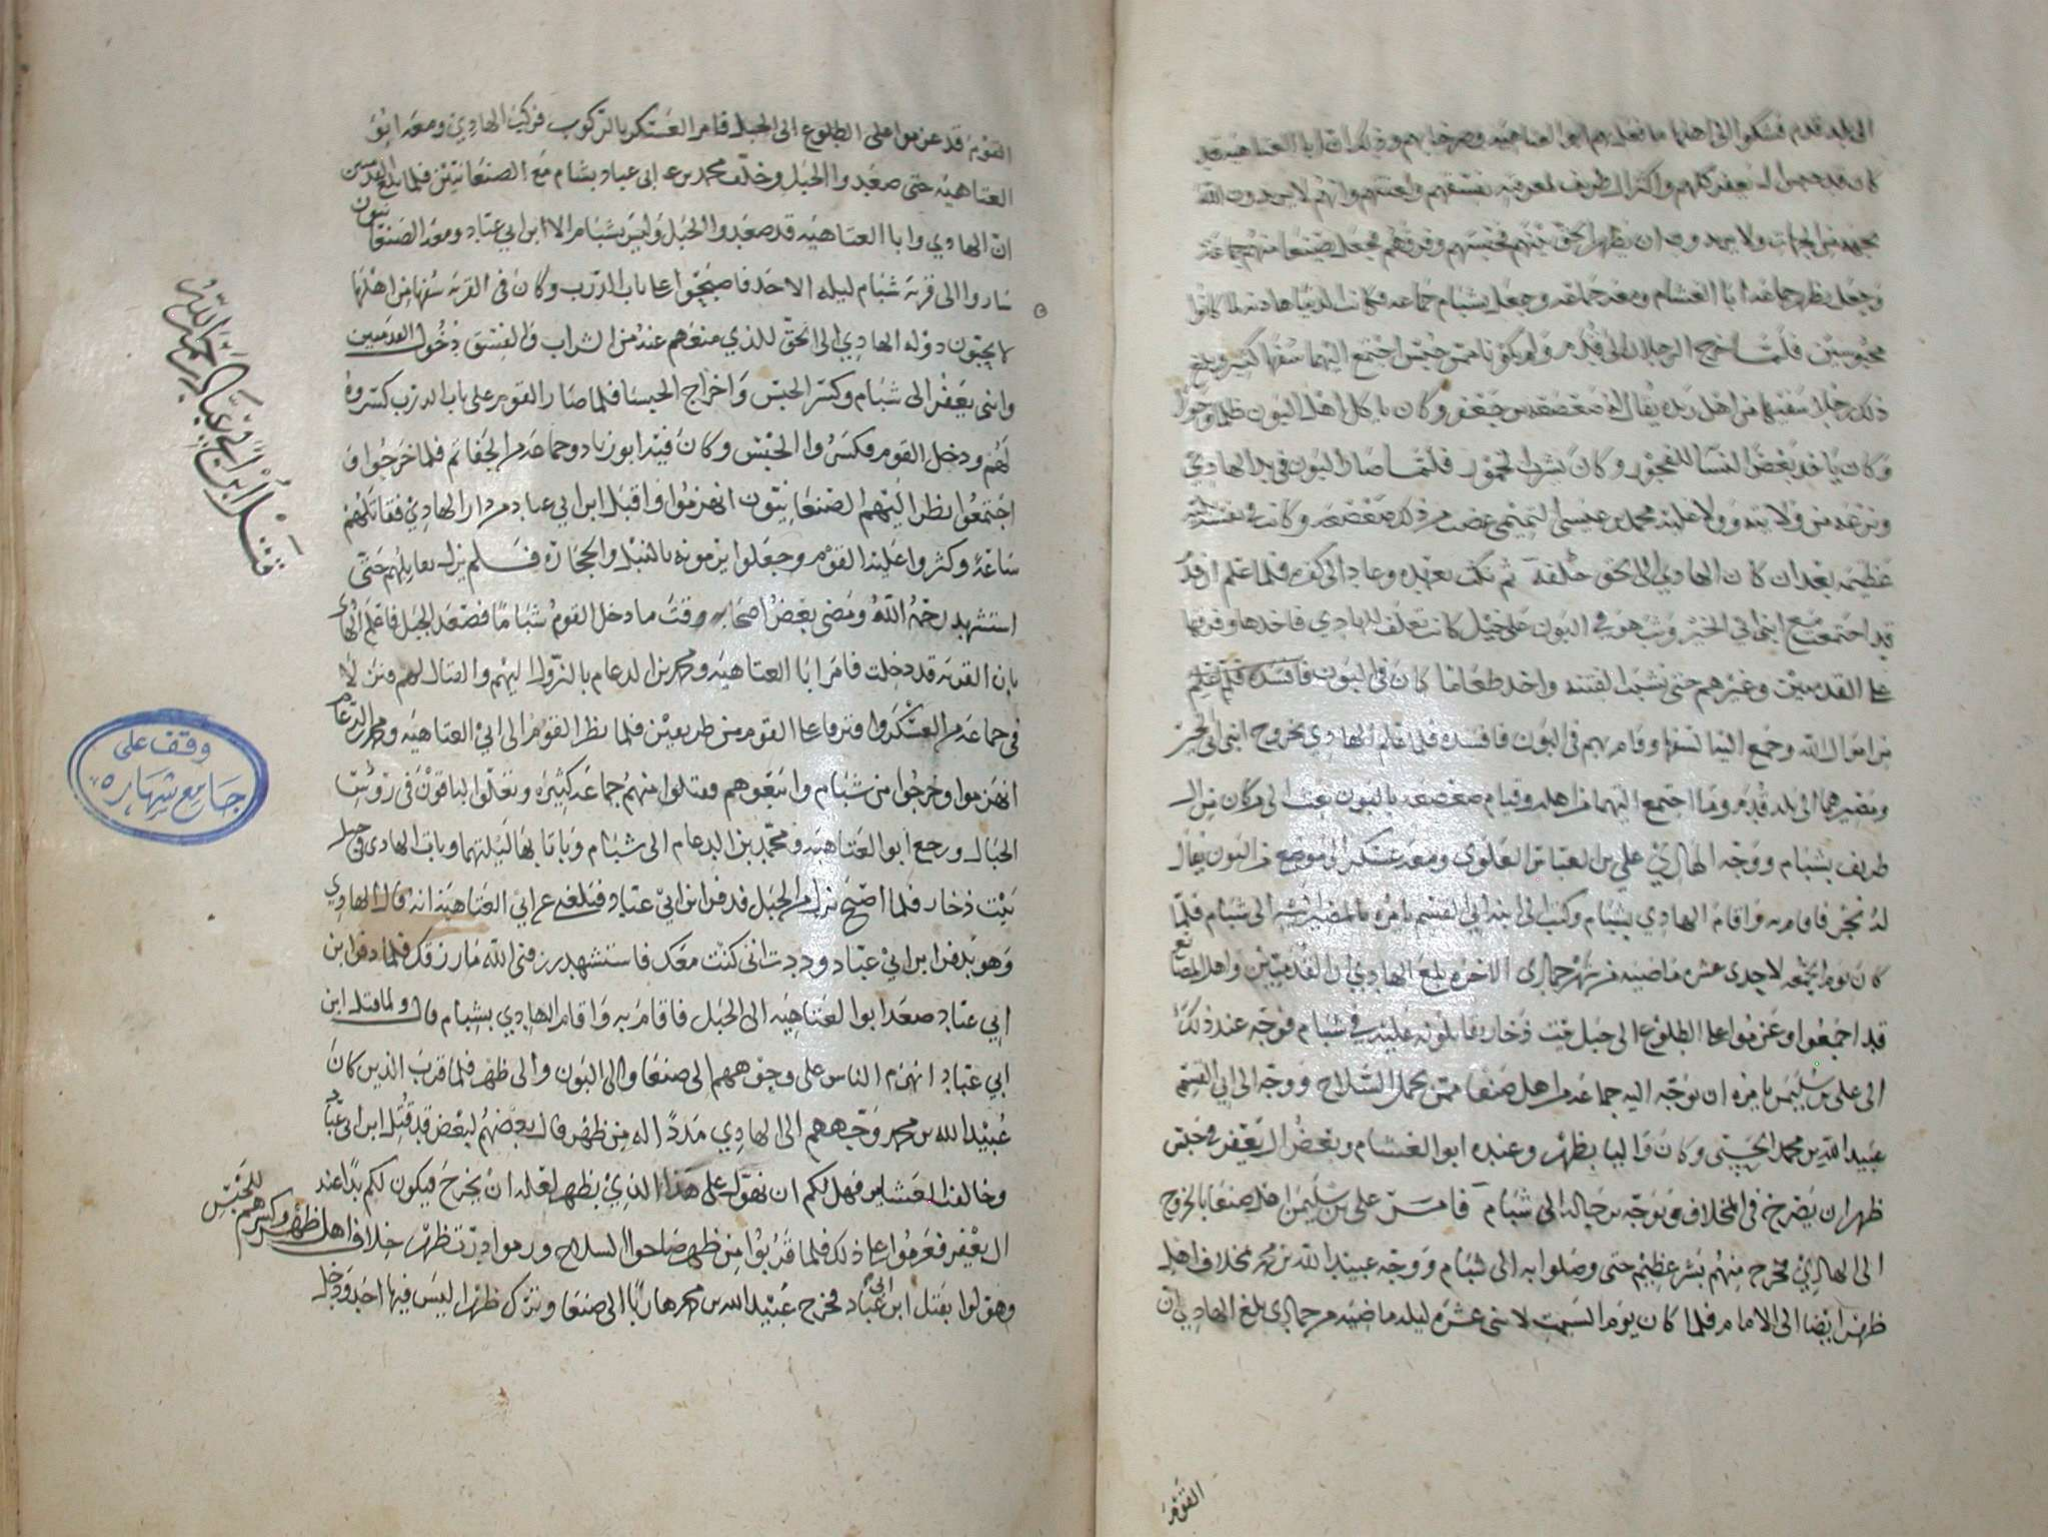 الى بلد قدم فشكوا الى اهلها ما فعل بهم ابو العتاهيه وصرخا بهم وذكرا ان ابا العتاهيه قد
كان قد حبس ال يعفر كلهم واكثر ال طريف لمعرفته بفسقهم ولعنتهم وانهم لا يريدون الله
وجعل بظهر جماعه ابا الغشام ومعه جماعه وجعل بشبام جماعه فكانت الدنيا هادنه لما كانوا
محبوسين فلما خرج الرجلان الى قدم ولم يكونا ممن حبس اجتمع اليهما سفها كثير وبلغ
ذلك رجلا سفيها من اهل ريده يقال له صعصعه بن جعفر وكان ياكل اهل البون ظلما وجورا
وكان ياخذ بعض النسا للفجور وكان يشرب الخمور فلما صار البون في يد الهادي
ونزعه من ولايته وولا عليه محمد بن عيسى التميمي غضب من ذلك صعصعه وكانت في نفسه
عظيمه بعد ان كان الهادي الى الحق حلفه ثم نكث بعهده وعاد الى كفره فلما علم ان قد
قد اجتمعت مع ابنى ابي الخير وثب هو في البون على خيل كانت تعلف للهادي فاخذها وفرقها
على القدميين وغيرهم حتى نشبت الفتنه واخذ طعاما كان في البون فافسده
من اموال الله وجمع اليه السفها وقام بهم في البون فافسده فلما علم الهادي بخروج ابنى ابي الخير
ومصيرهما الى بلد قدم وما اجتمع اليهما من اهله وقيام صعصعه بالبون بعث الى من كان من ال
طريف بشبام ووجه الهادي علي بن العباس العلوي ومعه عسكر الى موضع من البون يقال
له نجر فاقام به واقام الهادي بشبام وكتب الى ابنه ابي القسم يامره بالمصير اليه الى شبام فلما
كان يوم الجمعه لاحدى عشره ماضيه من شهر جمادى الاخره بلغ الهادي ان القدميين واهل المصانع
قد اجمعوا وعزموا على الطلوع الى جبل بيت ذخار يقاتلونه عليه في شبام فوجه عند ذلك
الى علي بن سليمن يامره ان يوجه اليه جماعه من اهل صنعا ممن يحمل السلاح ووجه الى ابي القسم
عبيد الله بن محمد الحبشي وكان واليا بظهر وعنده ابو الغشام وبعض ال يعفر في حبس
ظهر ان يصرخ في المخلاف ويوجه برجاله الى شبام فامر علي بن سليمن اهل صنعا بالخروج
الى الهادي فخرج منهم بشر عظيم حتى وصلوا به الى شبام ووجه عبيد الله بن محمد بمخلاف اهل
ظهر ايضا الى الامام فلما كان يوم السبت لاثنى عشره ليله ماضيه من جمادى بلغ الهادي ان
القوم
القوم قد عزموا على الطلوع الى الجبل فامر العسكر بالركوب فركب الهادي ومعه ابو
العتاهيه حتى صعدوا الجبل وخلف محمد بن ابي عباد بشبام مع الصنعانيين فلما بلغ القدميين
ان الهادي وابا العتاهيه قد صعدوا الجبل وليس بشبام الا ابن ابي عباد ومعه الصنعانيون
ساروا الى قرية شبام ليلة الاحد فاصبحوا على باب الدرب وكان في القرية سفها من اهلها
لا يحبون دولة الهادي الى الحق للذي منعهم عنه من الشراب والفسق دخول القدميين
وابنى يعفر الى شبام وكسر الحبس واخراج الحبسا فلما صار القوم على باب الدرب كسروه
لهم ودخل القوم فكسروا الحبس وكان فيه ابو زياد وجماعه من الجفاتم فلما خرجوا و
اجتمعوا نظر اليهم الصنعانيون انهزموا واقبل ابن ابي عباد من دار الهادي فقاتلهم
ساعة وكثروا عليه القوم وجعلوا يرمونه بالنبل والحجاره فلم يزل يقاتلهم حتى
استشهد رحمه الله ومضى بعض اصحابه وقت ما دخل القوم شبام فصعد الجبل فاعلم الهادي
بان القريه قد دخلت فامر ابا العتاهيه ومحمد بن الدعام بالنزول اليهم والقتال لهم فنزلا
في جماعه من العسكر وافترقا على القوم من طريقين فلما نظر القوم الى ابي العتاهيه ومحمد بن الدعام
انهزموا وخرجوا من شبام واتبعوهم فقتلوا منهم جماعه كثيره وتعلقوا الباقون في رؤس
الجبال ورجع ابو العتاهيه ومحمد بن الدعام الى شبام وباتا بها ليلتهما وبات الهادي في جبل
بيت ذخار فلما اصبح نزل من الجبل قد فن ابن ابي عباد فبلغني عن ابي العتاهيه انه قال للهادي
وهو يدفن ابن ابي عباد وددت اني كنت معك فاستشهد رزقني الله ما رزقك فلما دفن ابن
ابي عباد صعد ابو العتاهيه الى الجبل فاقام به واقام الهادي بشبام قال ولما قتل ابن
ابي عباد انهزم الناس على وجوههم الى صنعا والى البون والى ظهر فلما قرب الذين كان
عبيد الله بن محمد وجههم الى الهادي مددا له من ظهر قال بعضهم لبعض قد قتل ابن ابي عباد
وخالفت العشاير فهل لكم ان نهول على هذا الذي بظهر لعله ان يخرج فيكون لكم يدا عند
ال يعفر فعزموا على ذلك فلما قربوا من ظهر صاحوا السلاح ورموا درب ظهر خلاف اهل ظهر وكسرهم للحبس
وهولوا بقتل ابن ابي عباد فخرج عبيد الله بن محمد هاربا الى صنعا وترك ظهرا ليس فيها احد ودخل
مقتل ابن ابي عباد رحمه الله
وقف على
جامع شهاره